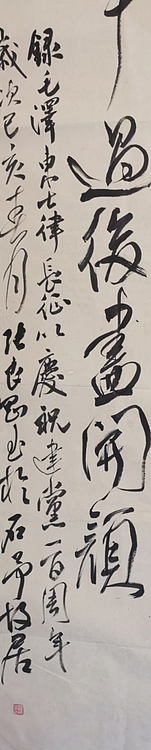 過後盡開顏
錄毛澤東七律長征以慶祝建黨一百周年
歲次己亥春月張良書於石故居